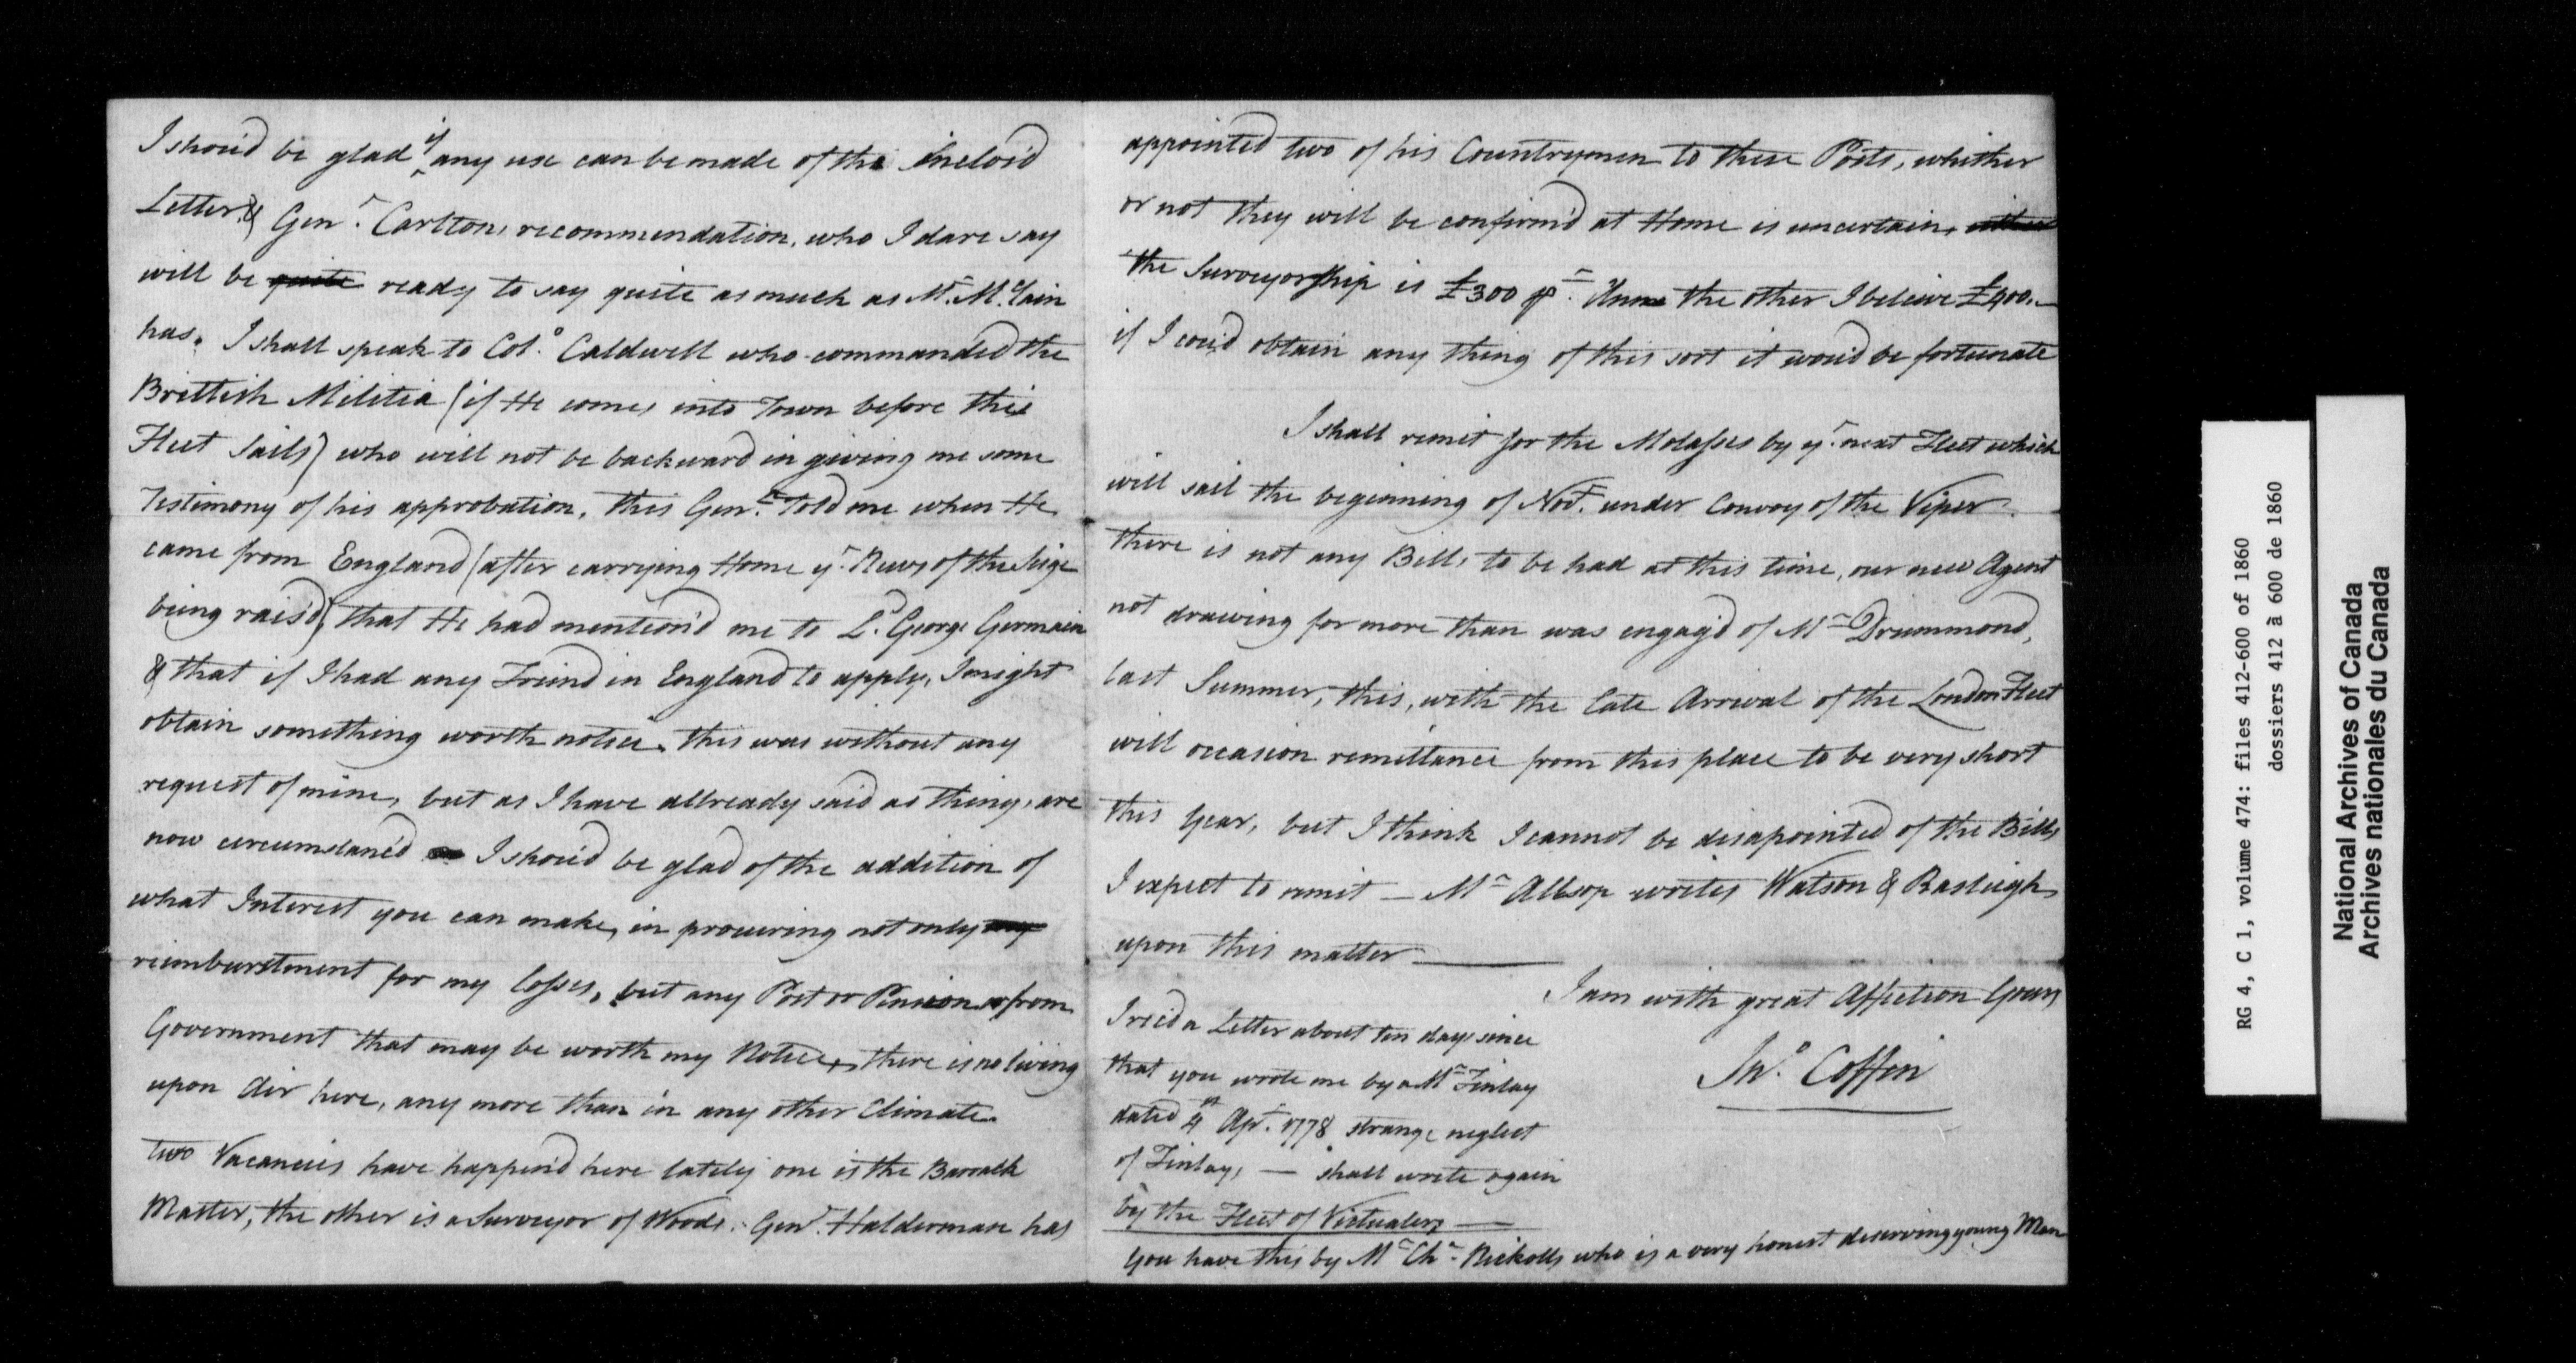 I shou'd be glad if any use can be made of the Inclos'd
Letter & Gen.r Carltons recommendation, who I dare say
will be quite ready to say quite as much as Mr. McLain
has. I shall speak to Col.o Caldwell who commanded the
Brittish Militia (if He comes into Town before this
Fleet Sails) who will not be backward in giving me some
Testimony of his approbation. this Gen.n told me when He
came from England (after carrying Home ye. News of the Siege
being rais'd) that He had mention'd me to Ld. George Germain
& that if I had any Friend in England to apply, I might
obtain something worth notice. this was without any
request of mine, but as I have allready said as things are
now circumstanc'd I shou'd be glad of the addition of
what Interest you can make, in procuring not only any
reimburstment for my losses, but any Post or Pension from
Government that may be worth my Notice, there is no living
upon Air here, any more than in any other Climate.
two Vacancies have happen'd here lately one is the Barrack
Master, the other is a Surveyor of Woods. Gen.l Halderman has
appointed two of his Countrymen to these Posts, whither
or not they will be confirm'd at Home is uncertain,
the Surveyorship is £300 pr. Ann the other I believe £400.—
if I cou'd obtain any thing of this sort it wou'd be fortunate
I shall remit for the Molasses by ye. next Fleet which
will sail the beginning of Nov.r under Convoy of the Viper.
there is not any Bills to be had at this time, our new Agent
not drawing for more than was engag'd of Mr Drummond,
last Summer, this, with the late Arrival of the London Fleet
will occasion remittance from this place to be very short
this Year, but I think I cannot be disapointed of the Bills
I expect to remit — Mr Allsop writes Watson & Rasleigh
upon this matter ——
I am with great Affection Yours
Jn.o Coffin
I rec'd a Letter about ten days since
that you wrote me by a Mr Finlay
dated 4th Apr. 1778 strange neglect
of Finlays — shall write again
by the Fleet of Victualers —
You have this by Mr Chs Nickolls who is a very honest deserving young Man
RG 4, C 1, volume 474: files 412-600 of 1860
dossiers 412 à 600 de 1860
National Archives of Canada
Archives nationales du Canada